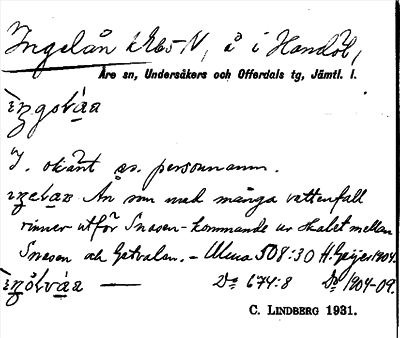 Ingelån 1 Eb5-N, å i Handöl,
Åre sn, Undersåkers och Offerdals tg, Jämtl. l.
I. okänt ss. personnamn.
Ån som med många vattenfall
rinner utför Snasen - kommande ur skalet mellan
Snasen och Getvalen. - Ulma 508:30 H. Geijer 1904.
— D:o 674:8 D:o 1904-09.
C. LINDBERG 1931.